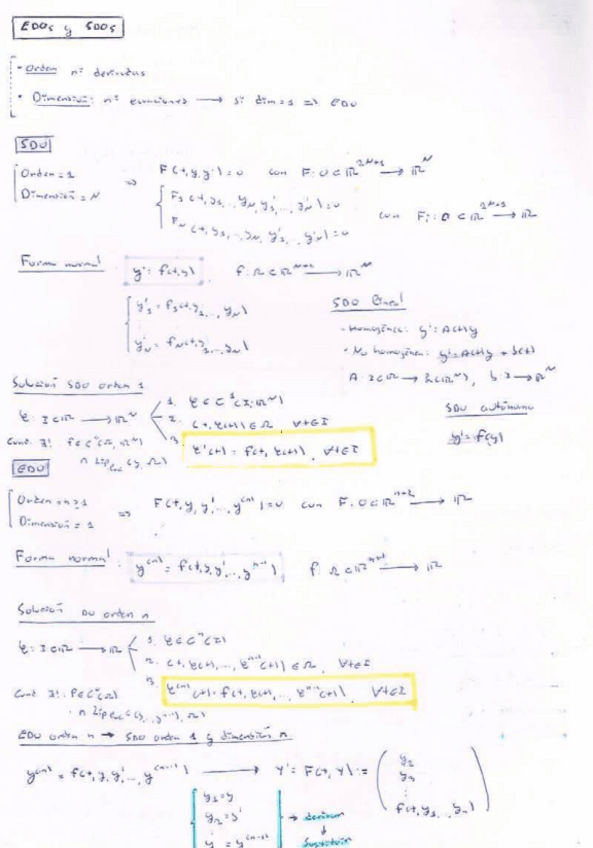 EDOs y SDOs
- Orden nº derivadas
• Dimensión: nº ecuaciones ⟶ si dim = 1 => EDO
SDO
Orden = 1
Dimensión = N
=> F(t,y,y') = 0 con F: O ⊂ ℝ^{2N+1} ⟶ ℝ^N
F_1(t,y_1,...,y_N,y'_1,...,y'_N) = 0
F_N(t,y_1,...,y_N,y'_1,...,y'_N) = 0 con F_i: O ⊂ ℝ^{2N+1} ⟶ ℝ
Forma normal: y' = f(t,y) f: Ω ⊂ ℝ^{N+1} ⟶ ℝ^N
y'_1 = f_1(t,y_1,...,y_N)
⋮
y'_N = f_N(t,y_1,...,y_N)
SDO lineal
- Homogénea: y' = A(t)y
• No homogénea: y' = A(t)y + b(t)
A: I ⊂ ℝ ⟶ L(ℝ^N), b: I ⟶ ℝ^N
SDO autónomo
y' = f(y)
Solución SDO orden 1
φ: I ⊂ ℝ ⟶ ℝ^N
1. φ ∈ C^1(I; ℝ^N)
2. (t, φ(t)) ∈ Ω, ∀t ∈ I
3. φ'(t) = f(t, φ(t)), ∀t ∈ I
Cond. ∃!: f ∈ C^0(Ω, ℝ^N)
∩ Lip_loc(y, Ω)
EDO
Orden = n ≥ 1
Dimensión = 1
=> F(t,y,y',...,y^{(n)}) = 0 con F: O ⊂ ℝ^{n+2} ⟶ ℝ
Forma normal: y^{(n)} = f(t,y,y',...,y^{n-1}) f: Ω ⊂ ℝ^{n+1} ⟶ ℝ
Solución DO orden n
φ: I ⊂ ℝ ⟶ ℝ
1. φ ∈ C^n(I)
2. (t, φ(t),..., φ^{n-1}(t)) ∈ Ω, ∀t ∈ I
3. φ^{(n)}(t) = f(t, φ(t),..., φ^{n-1}(t)), ∀t ∈ I
Cond ∃!: f ∈ C^0(Ω)
∩ Lip_loc((y,..,y^{n-1}), Ω)
EDO orden n → SDO orden 1 y dimensión n
y^{(n)} = f(t,y,y',...,y^{(n-1)}) ⟶ Y' = F(t,Y) := (y_2 y_3 ⋮ f(t,y_1,...,y_n))
y_1 = y
y_2 = y'
⋮
y = y^{(n-1)}
→ derivar
↓
sustituir